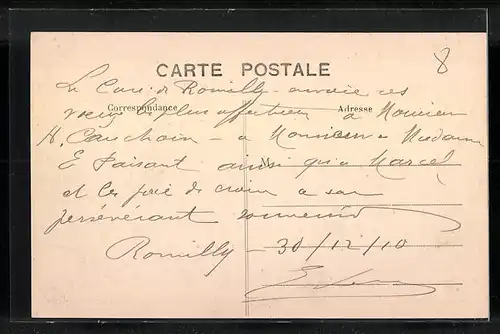 8
CARTE POSTALE
Correspondance
Adresse
Le Curé de Romilly envoie ses
vœux les plus affectueux à Monsieur
H. Cauchoin - à Monsieur & Madame
E Paisant ainsi qu'à Marcel
et les prie de croire à son
persévérant souvenir
Romilly - 30/12/10